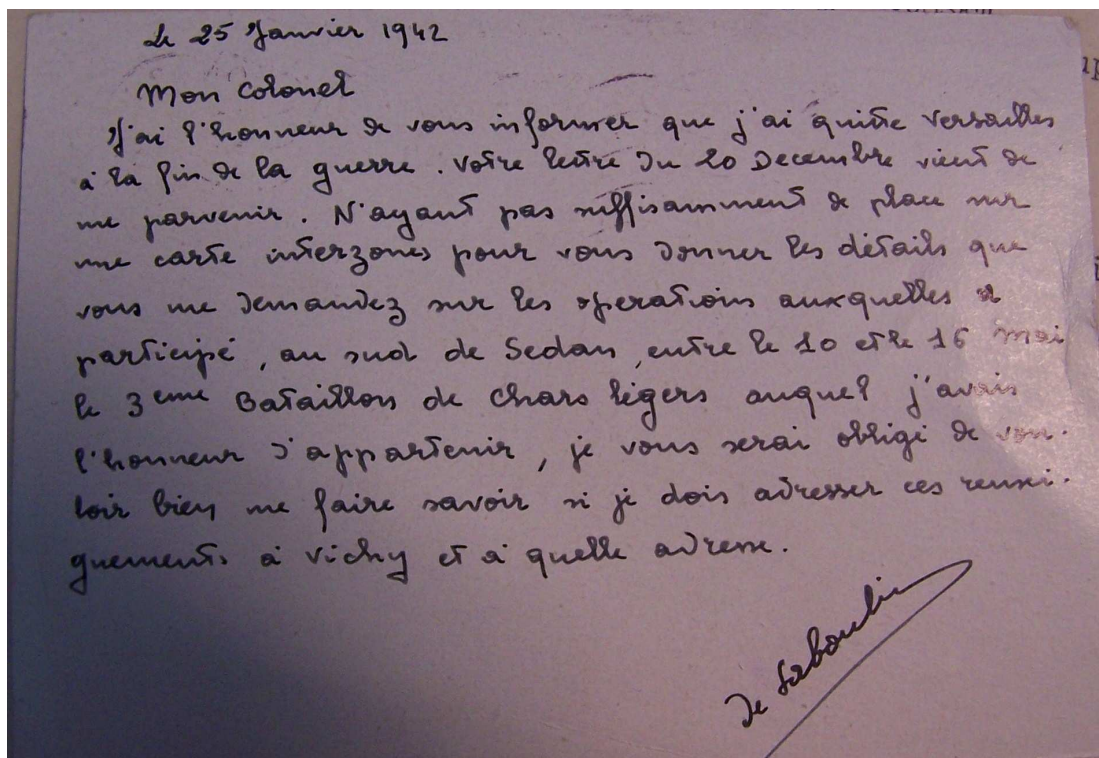 Le 25 Janvier 1942
Mon Colonel
J'ai l'honneur de vous informer que j'ai quitté Versailles
à la fin de la guerre. Votre lettre du 20 Decembre vient de
me parvenir. N'ayant pas suffisamment de place sur
une carte interzones pour vous donner les détails que
vous me demandez sur les operations auxquelles a
participé, au sud de Sedan, entre le 10 et le 16 mai
le 3eme Bataillon de Chars légers auquel j'avais
l'honneur d'appartenir, je vous serai obligé de vou-
loir bien me faire savoir si je dois adresser ces rensei-
gnements à Vichy et à quelle adresse.
de Saboulin